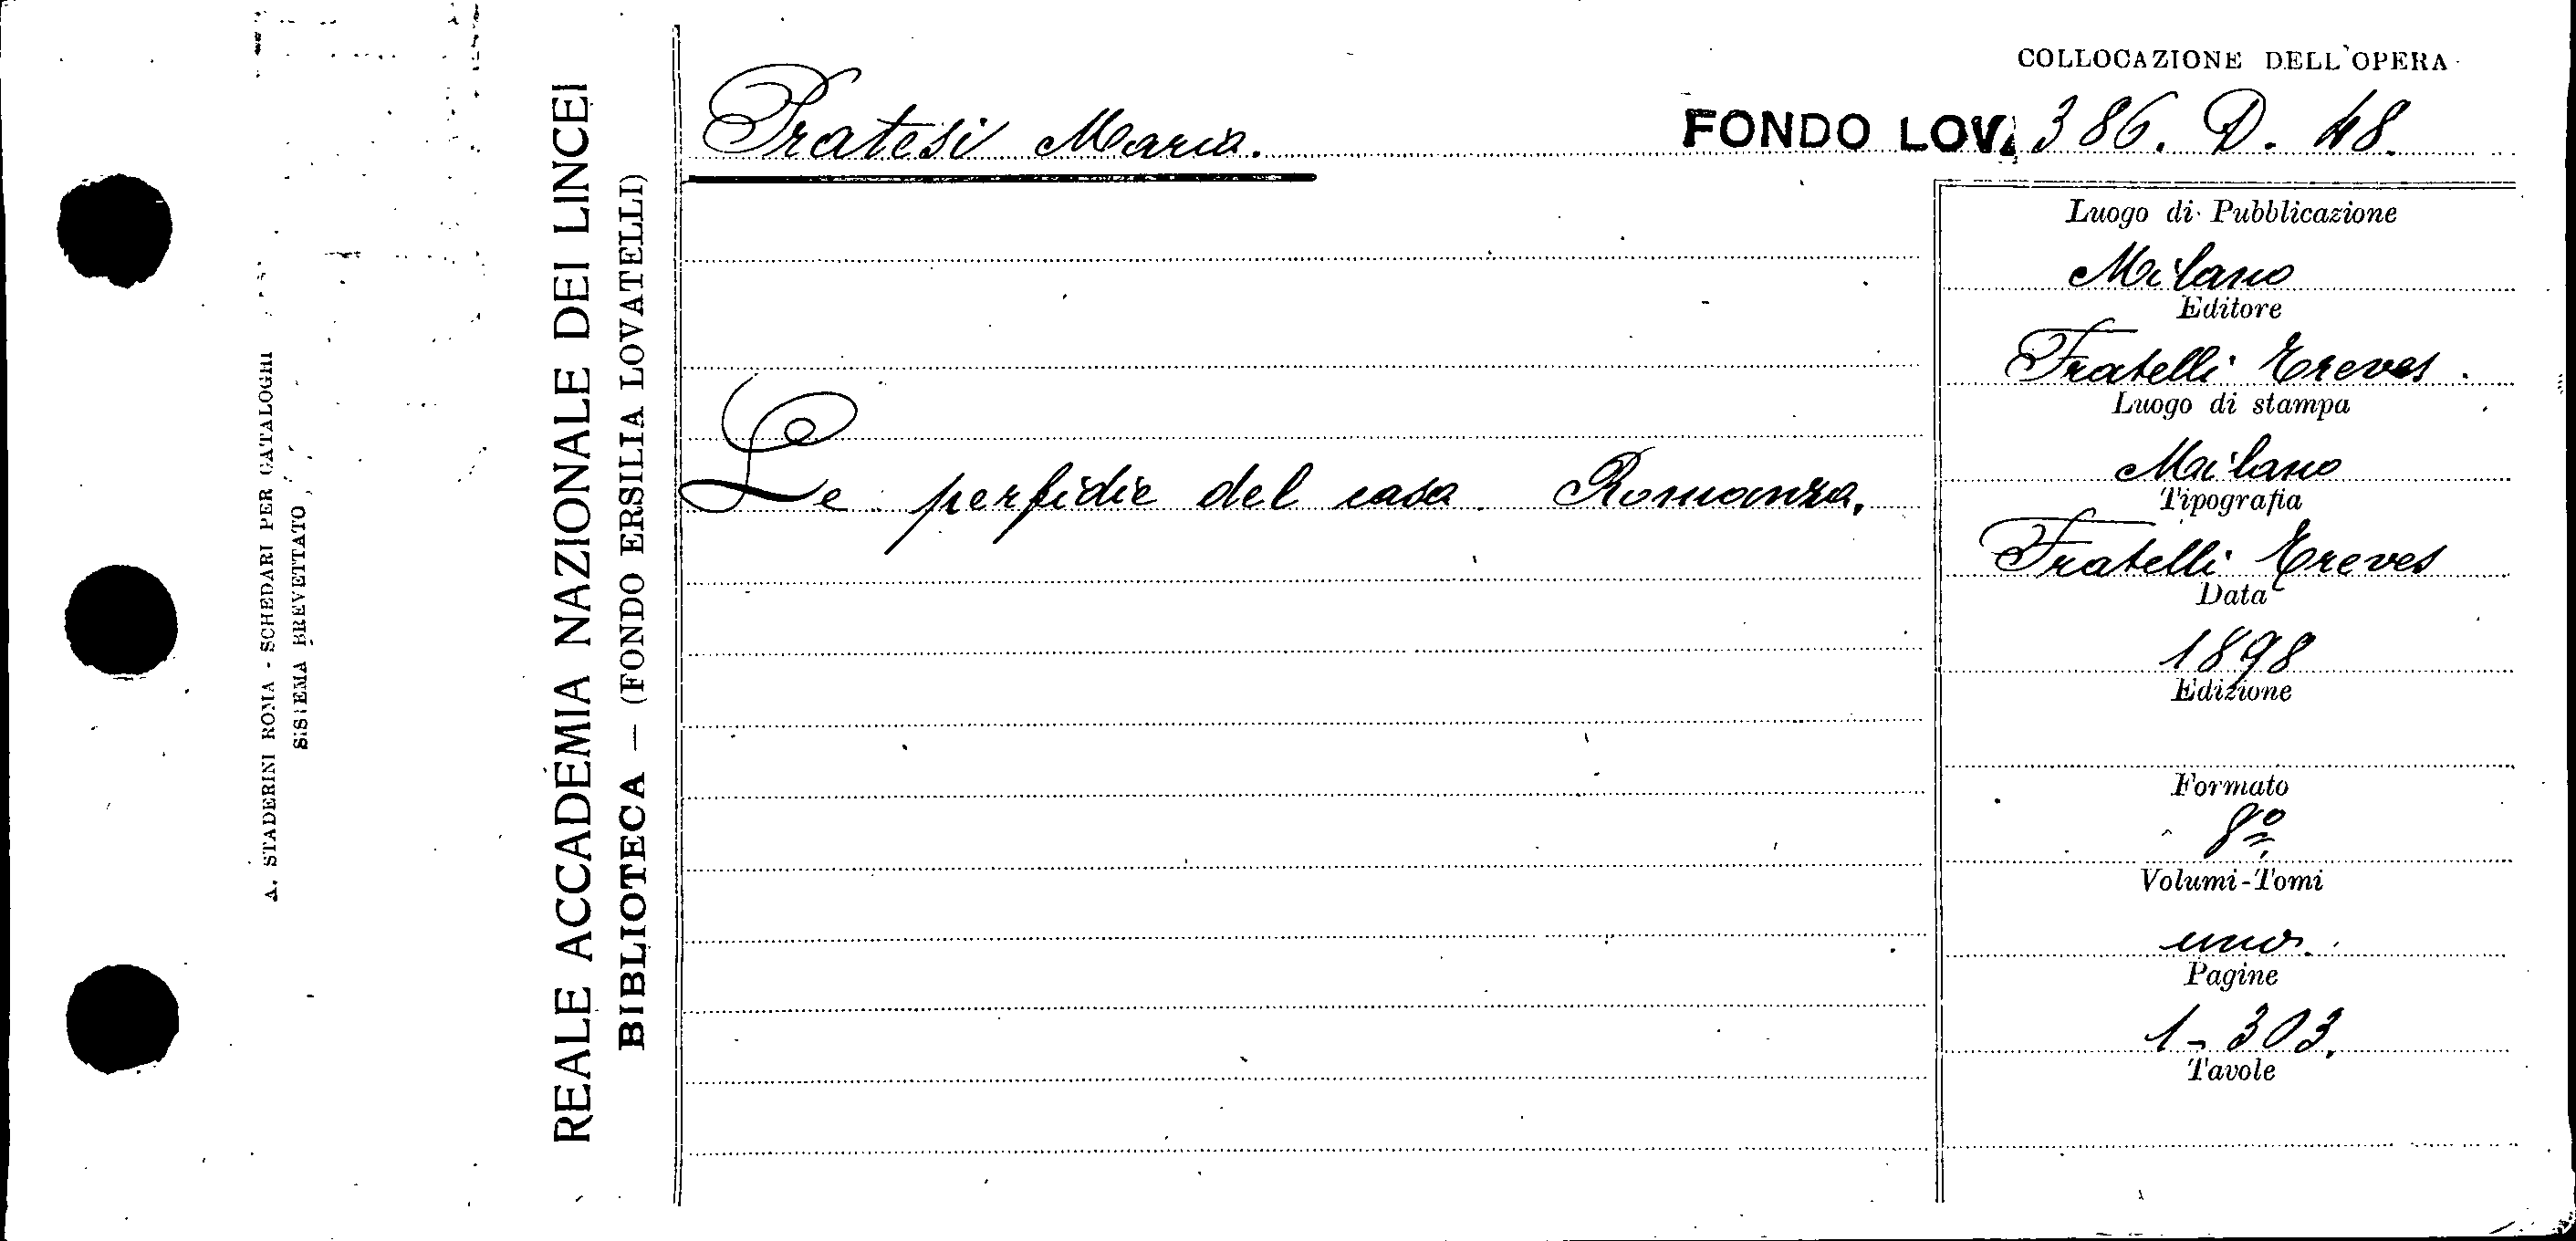 COLLOCAZIONE DELL'OPERA
Pratesi Maria.
FONDO LOV. 386. D. 48.
Le perfidie del casa Romanza.
Luogo di Pubblicazione
Milano
Editore
Fratelli Treves.
Luogo di stampa
Milano
Tipografia
Fratelli Treves
Data
1898
Edizione
Formato
8º
Volumi-Tomi
uno.
Pagine
1-303.
Tavole
REALE ACCADEMIA NAZIONALE DEI LINCEI
BIBLIOTECA — (FONDO ERSILIA LOVATELLI)
A. STADERINI ROMA - SCHEDARI PER CATALOGHI
SISTEMA BREVETTATO